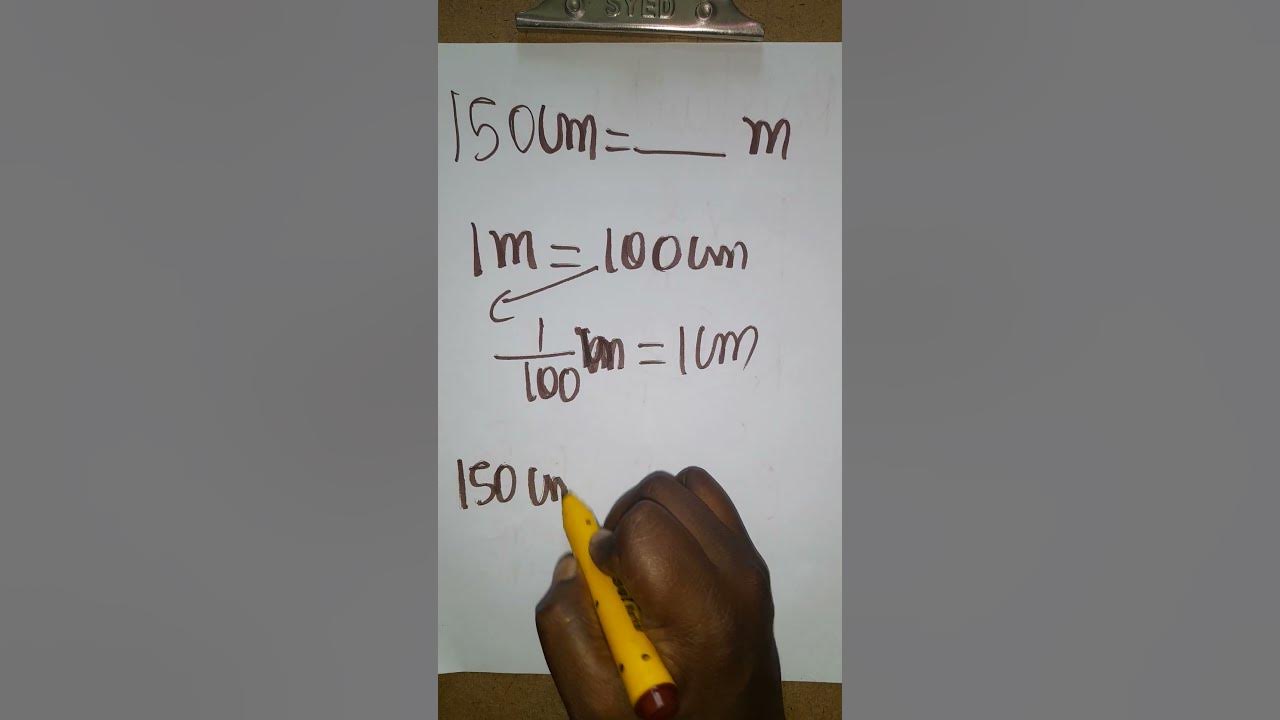 SYED
150cm = ___ m
1m = 100cm
1/100 m = 1cm
150 cm